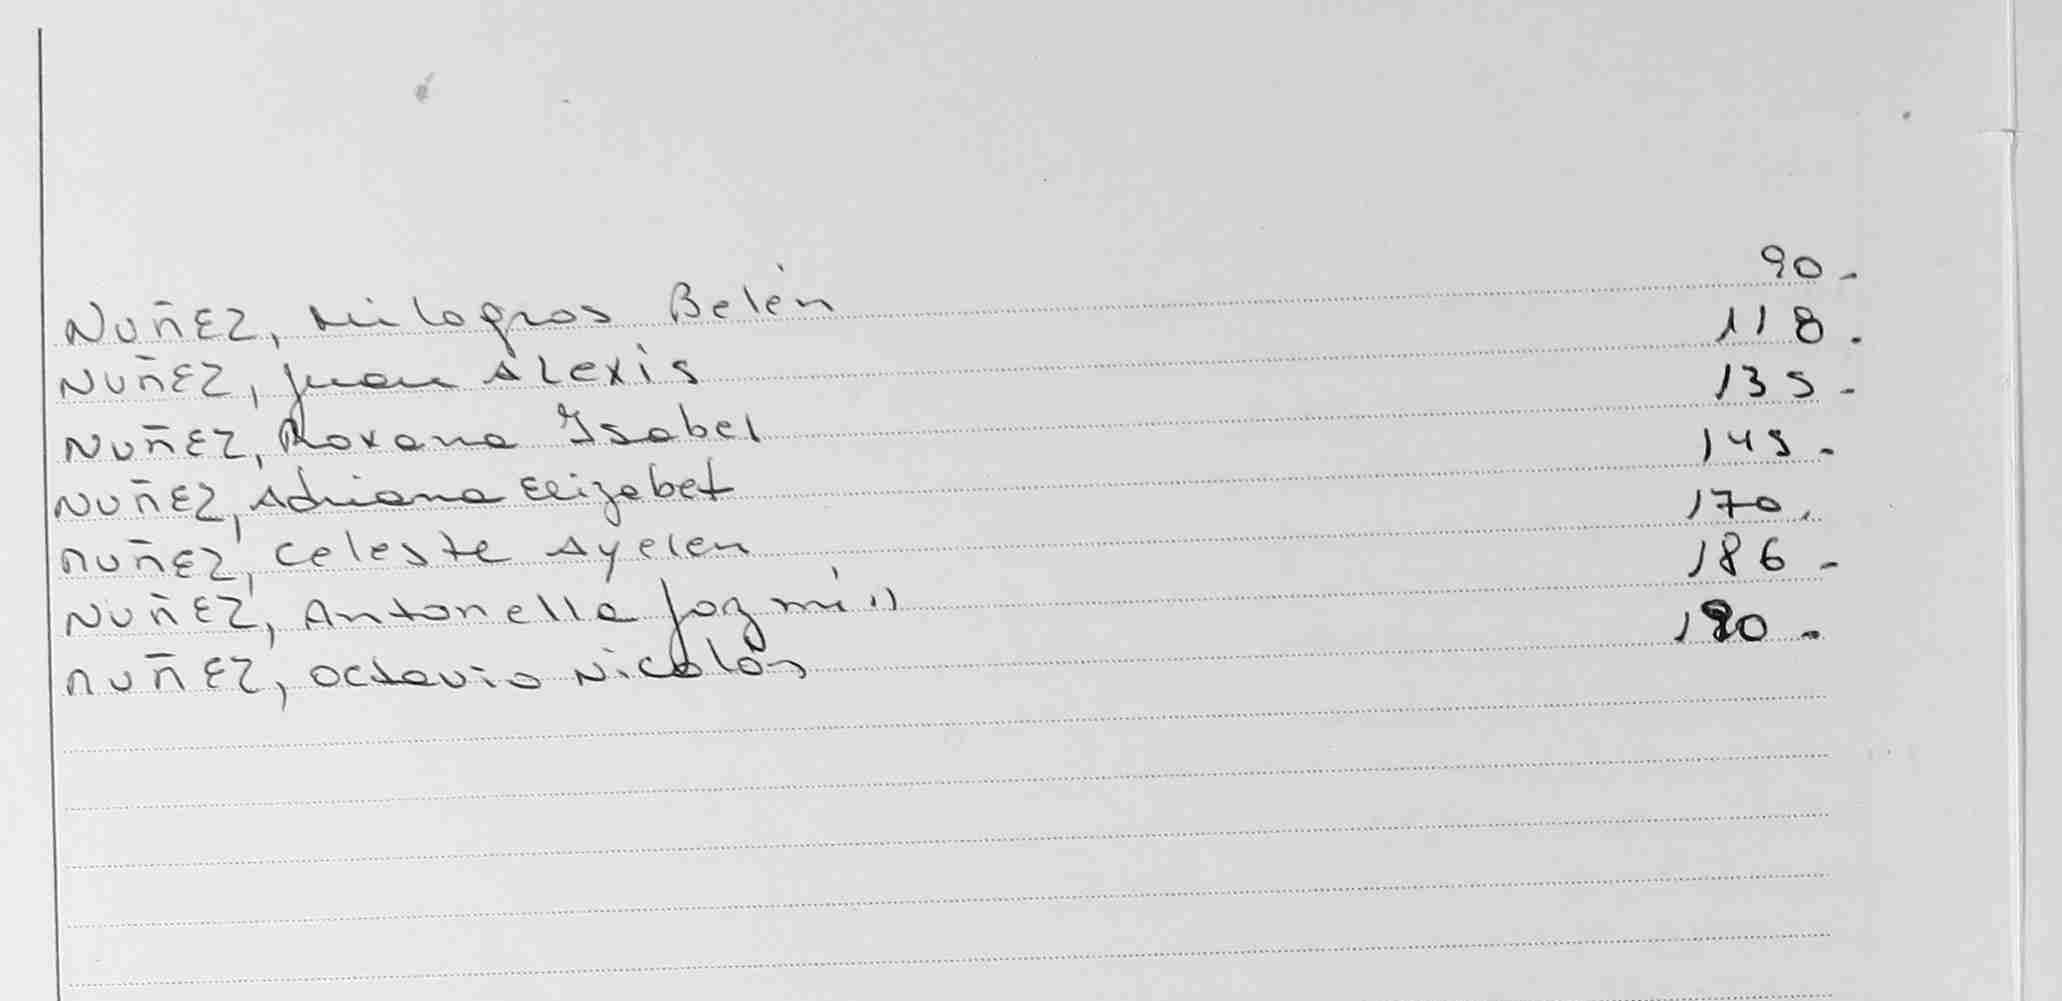 NUÑEZ, Milagros Belén 90.-
NUÑEZ, Juan Alexis 118.
NUÑEZ, Roxana Isabel 135-
NUÑEZ, Adriana Elizabet 145-
NUÑEZ, Celeste Ayelen 170.
NUÑEZ, Antonella Jazmín 186-
NUÑEZ, Octavio Nicolás 190-